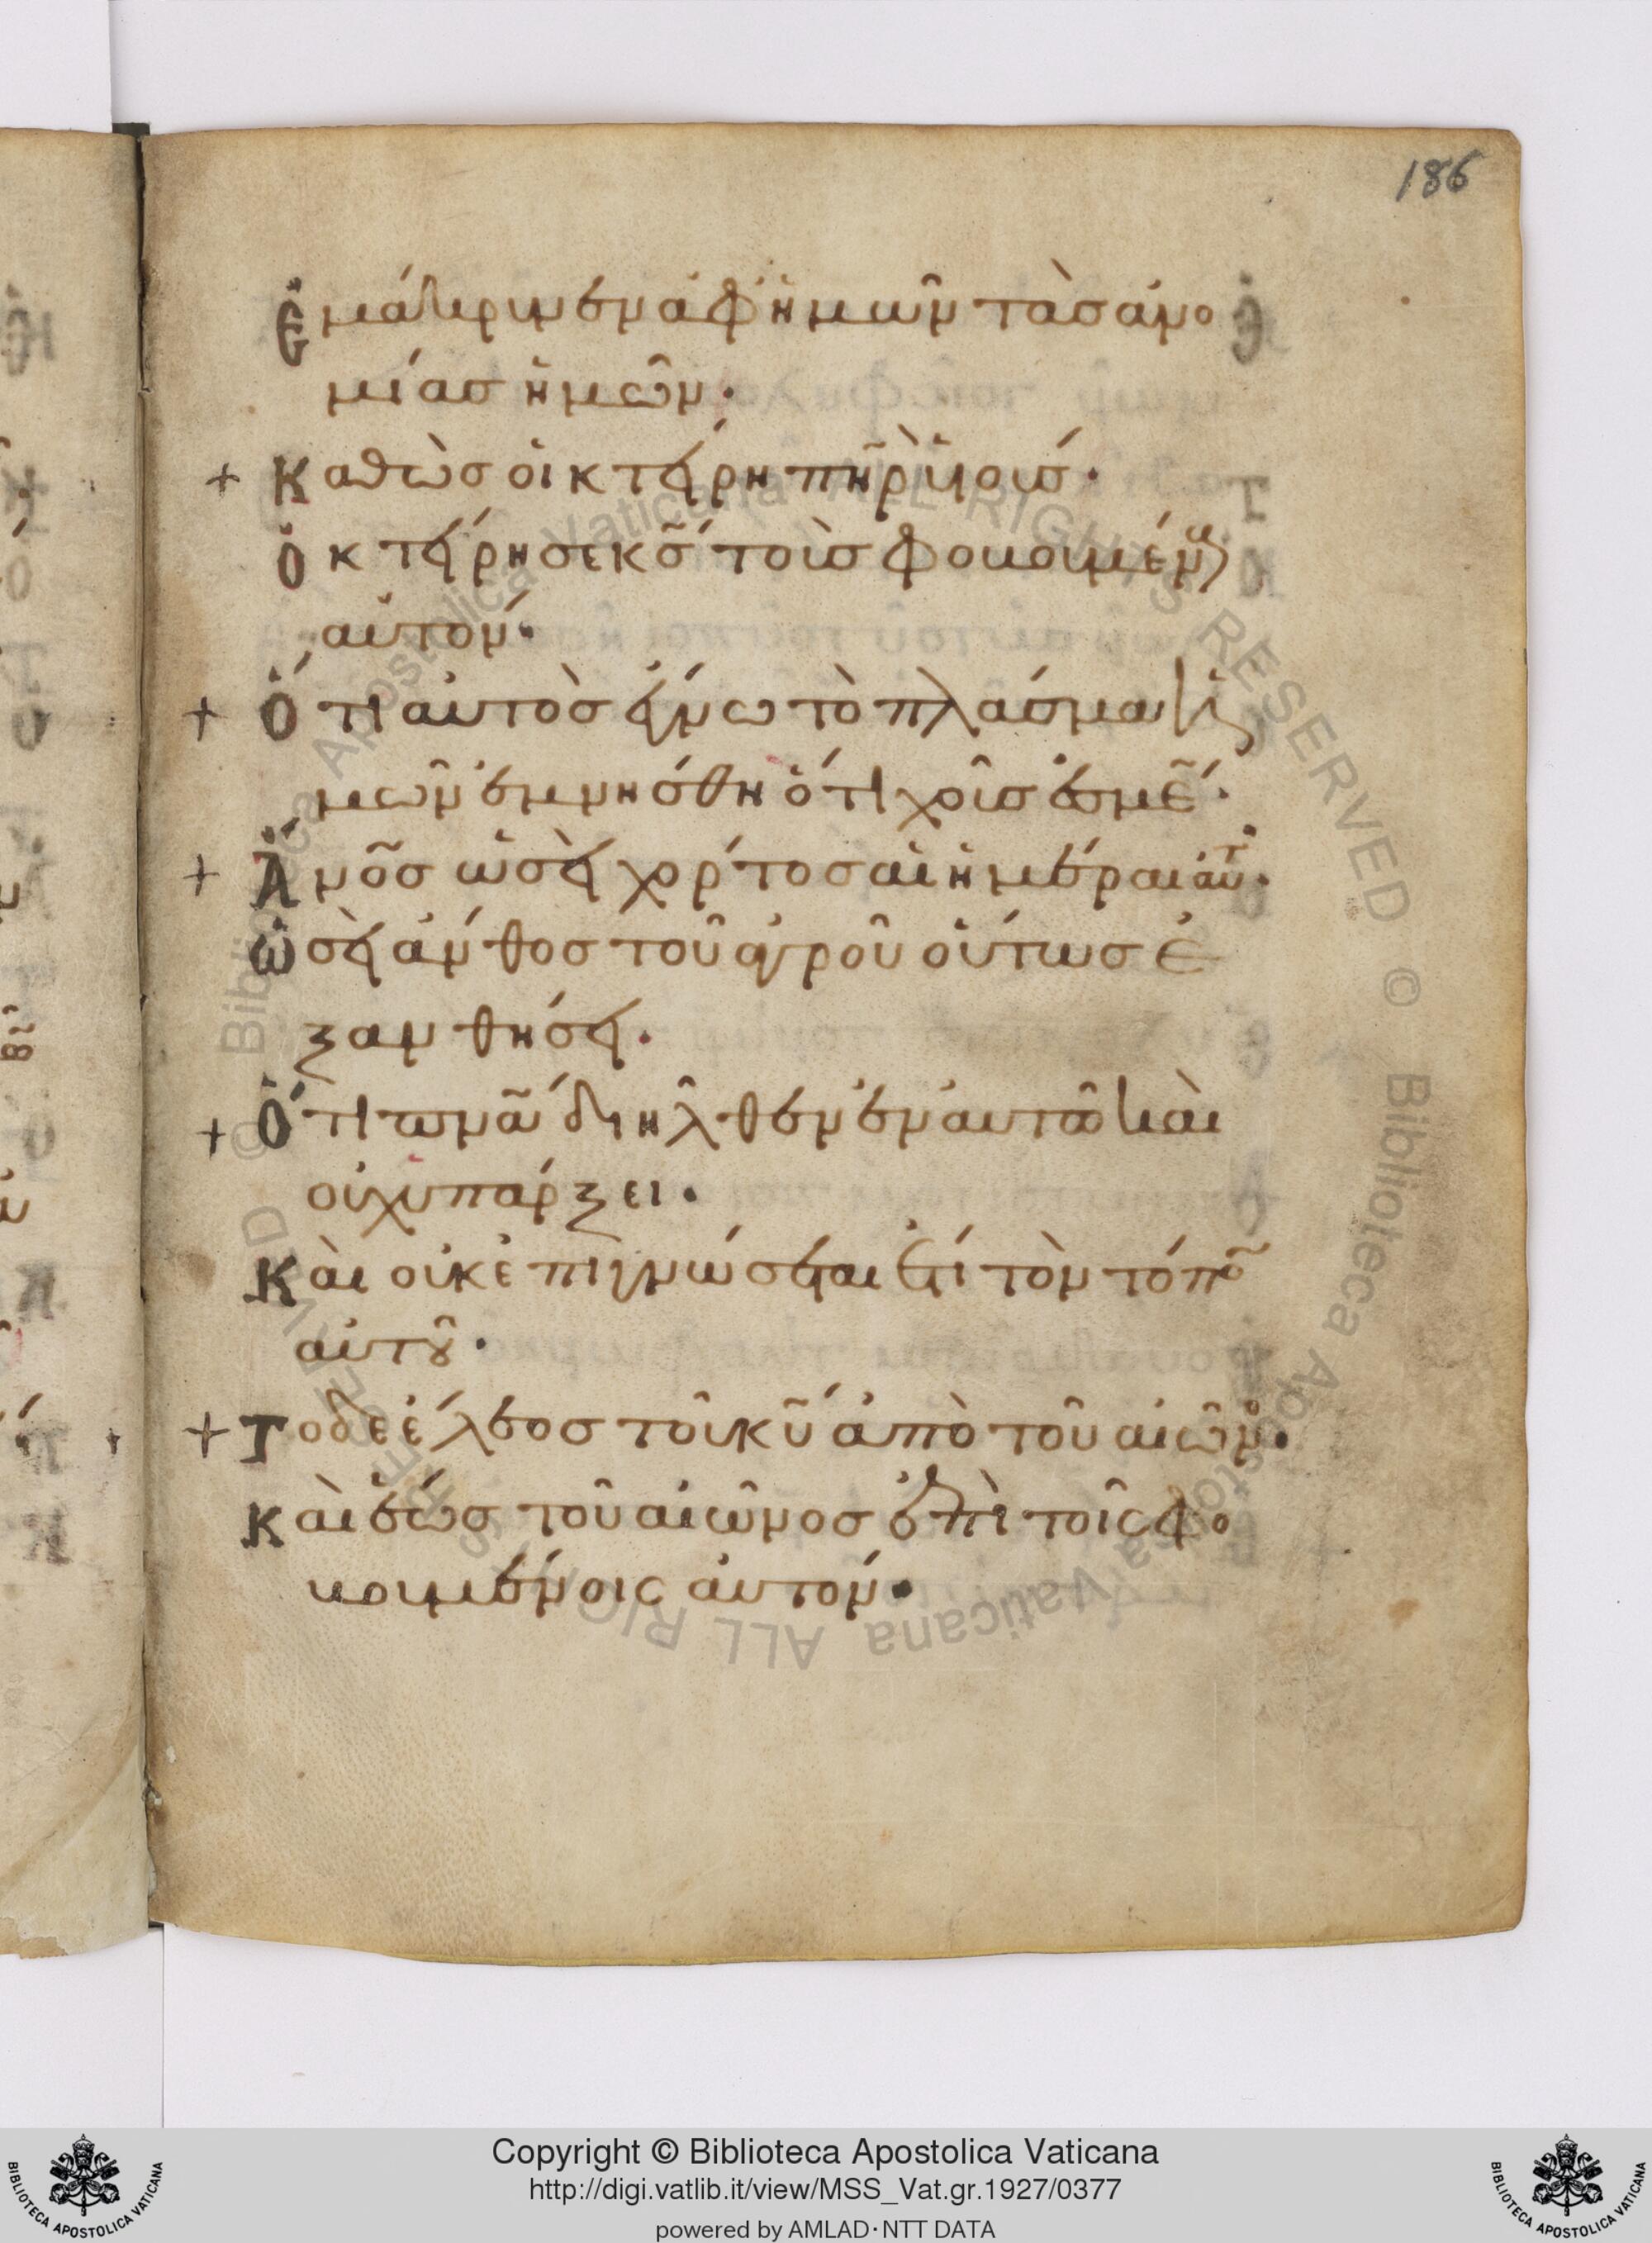 186
Ἐμάκρυνεν ἀφ ἡμῶν τὰσ ἀνο
μίασ ἡμῶν·
+ Καθὼσ οἰκτείρη πη̃ρ ὑιουσ·
Ὀκτείρησε κσ̃ τοὺσ φοβουμέν
αὐτον·
+ Ὅτι αὐτὸσ ἔγνω τὸ πλάσμα ἡ
μῶν ἐμνήσθη ὅτι χοῦσ ἐσμέ̃·
+ Ἄνο̃σ ὡσεὶ χόρτοσ αἱ ἡμέραι αὐτ·
Ὡσεὶ ἄνθοσ τοῦ ἀγροῦ οὕτωσ ἐ
ξανθήσει·
+ Ὅτι πνα̃ διῆλθεν ἐν αυτῶ καὶ
οὐχ υπάρξει·
Καὶ οὐκ ἐπιγνώσεται ἔτι τὸν τόπο̃
αὐτοῦ·
+ Το δε ἔλεοσ τοῦ κυ̃ ἀπὸ τοῦ αἰῶνο·
Καὶ ἕωσ τοῦ αἰῶνοσ ἐπὶ τοῖς φο
βουμένοις ἀυτον·
Copyright © Biblioteca Apostolica Vaticana
http://digi.vatlib.it/view/MSS_Vat.gr.1927/0377
powered by AMLAD·NTT DATA
BIBLIOTECA APOSTOLICA VATICANA
BIBLIOTECA APOSTOLICA VATICANA